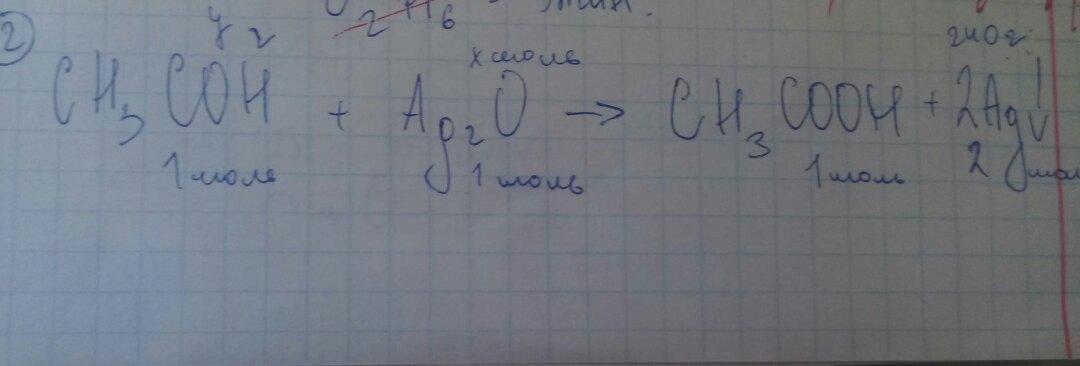 2 H6
2) y г х моль 240 г
CH3COH + Ag2O → CH3COOH + 2Ag↓
1 моль 1 моль 1 моль 2 моль